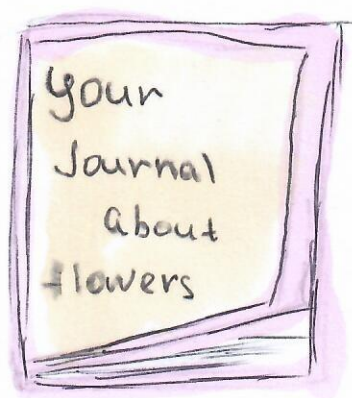 Your
Journal
About
flowers